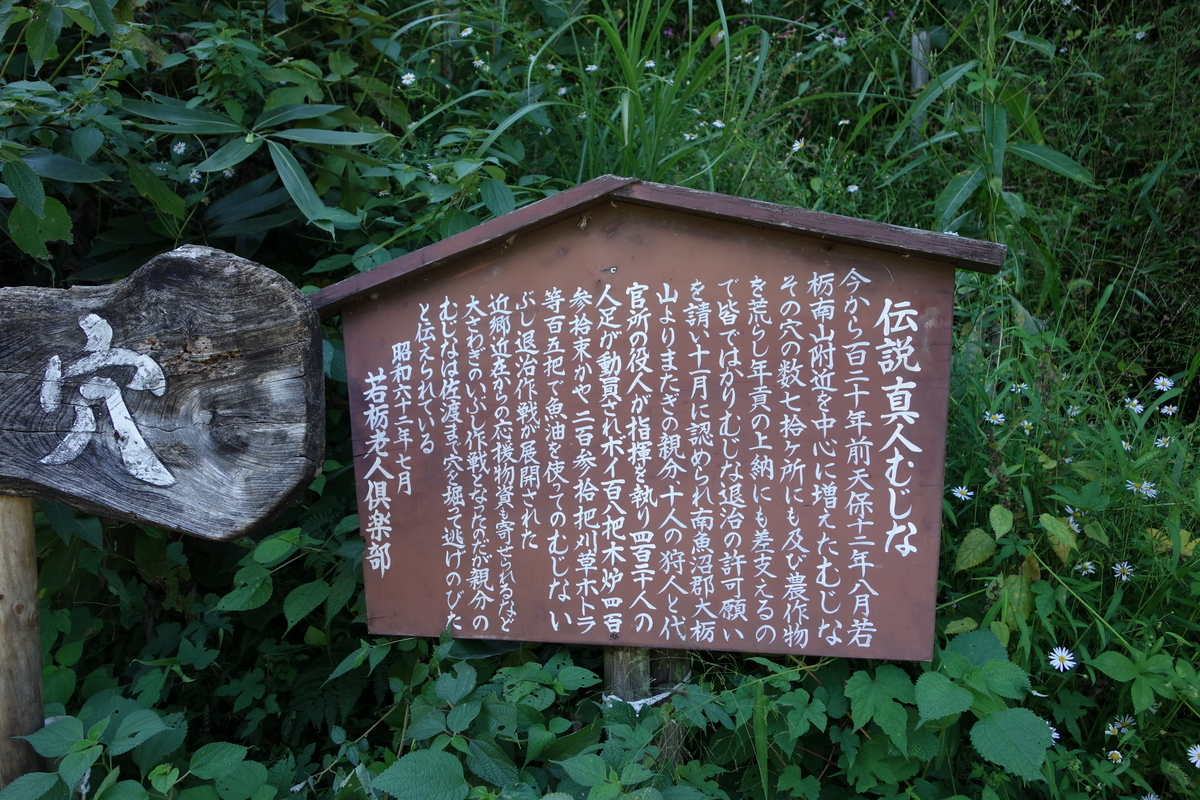 穴
伝説真人むじな
今から百二十年前天保十二年八月若
栃南山附近を中心に増えたむじな
その穴の数七拾ヶ所にも及び農作物
を荒らし年貢の上納にも差支えるの
で皆ではかりむじな退治の許可願い
を請い十一月に認められ南魚沼郡大栃
山よりまたぎの親分、十人の狩人と代
官所の役人が指揮を執り四百二十人の
人足が動員されボイ百八把木炉四百
参拾束かや二百参拾把刈草ホトラ
等百五把で魚油を使ってのむじない
ぶし退治作戦が展開された
近郷近在からの応援物資も寄せられるなど
大さわぎのいぶし作戦となったのだが親分の
むじなは佐渡まで穴を掘って逃げのびた
と伝えられている
昭和六十二年七月
若栃老人倶楽部